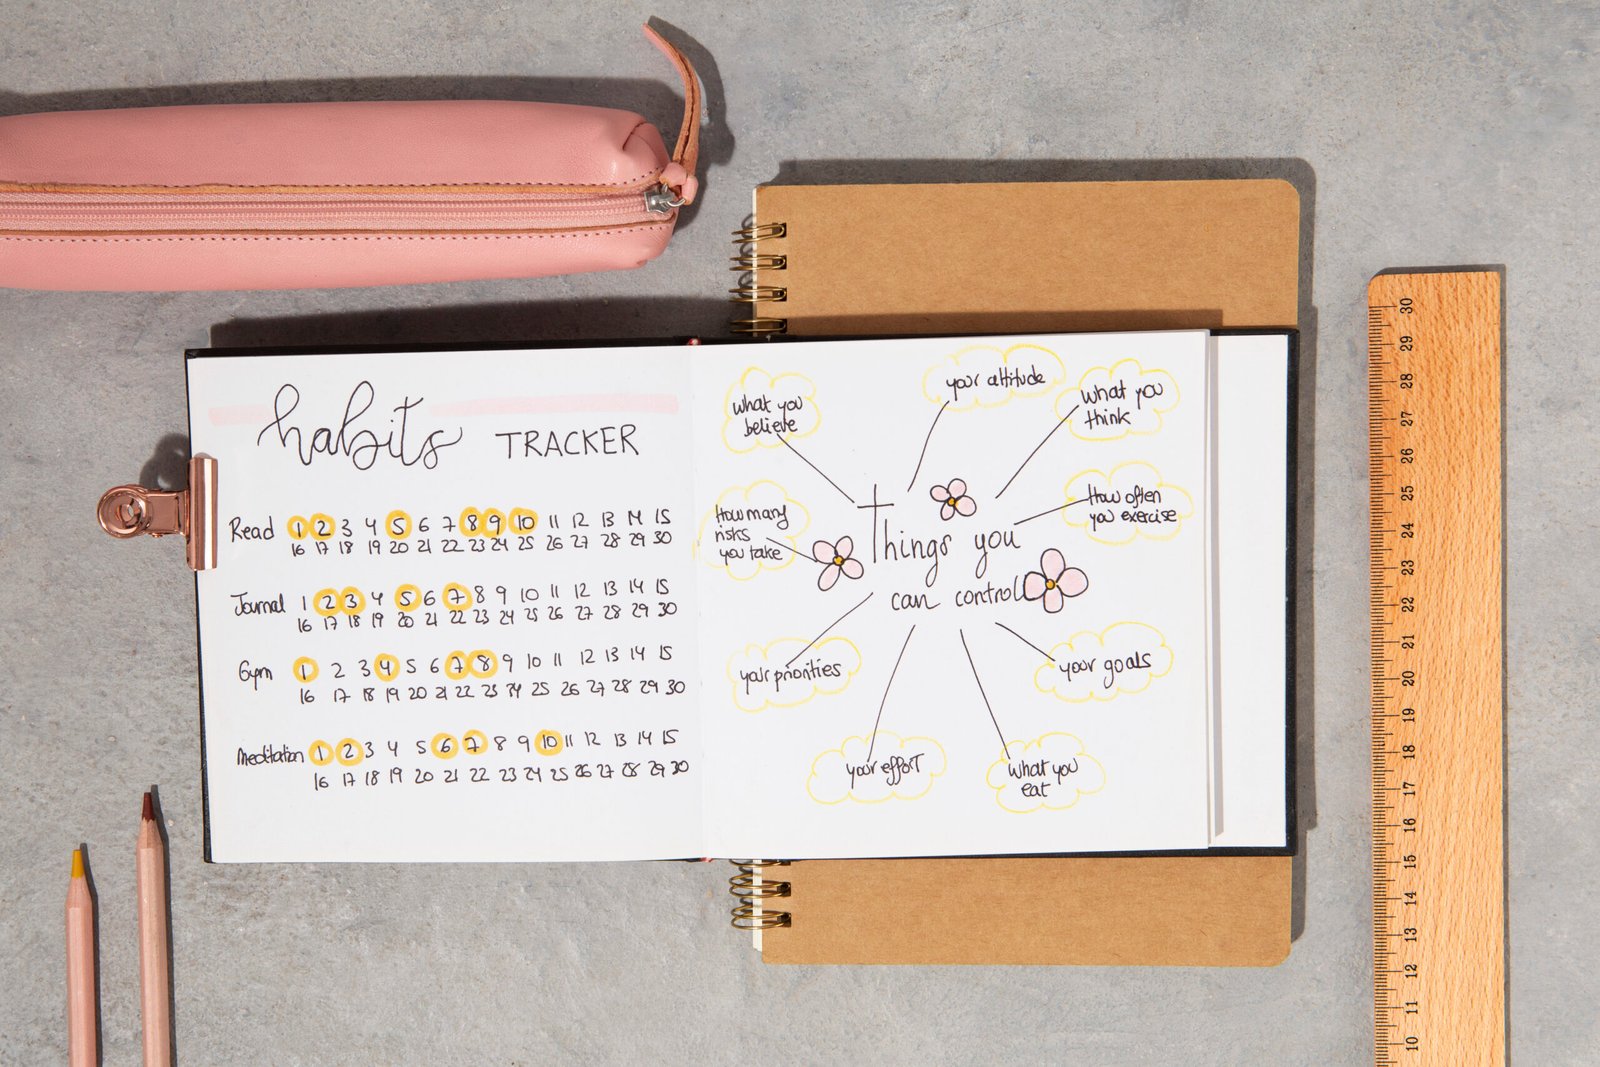 habits TRACKER
Read 1 2 3 4 5 6 7 8 9 10 11 12 13 14 15
16 17 18 19 20 21 22 23 24 25 26 27 28 29 30
Journal 1 2 3 4 5 6 7 8 9 10 11 12 13 14 15
16 17 18 19 20 21 22 23 24 25 26 27 28 29 30
Gym 1 2 3 4 5 6 7 8 9 10 11 12 13 14 15
16 17 18 19 20 21 22 23 24 25 26 27 28 29 30
Meditation 1 2 3 4 5 6 7 8 9 10 11 12 13 14 15
16 17 18 19 20 21 22 23 24 25 26 27 28 29 30
what you
believe
your attitude
what you
think
How many
risks
you take
How often
you exercise
Things you
can control
your priorities
your goals
your effort
what you
eat
30
29
28
27
26
25
24
23
22
21
20
19
18
17
16
15
14
13
12
11
10